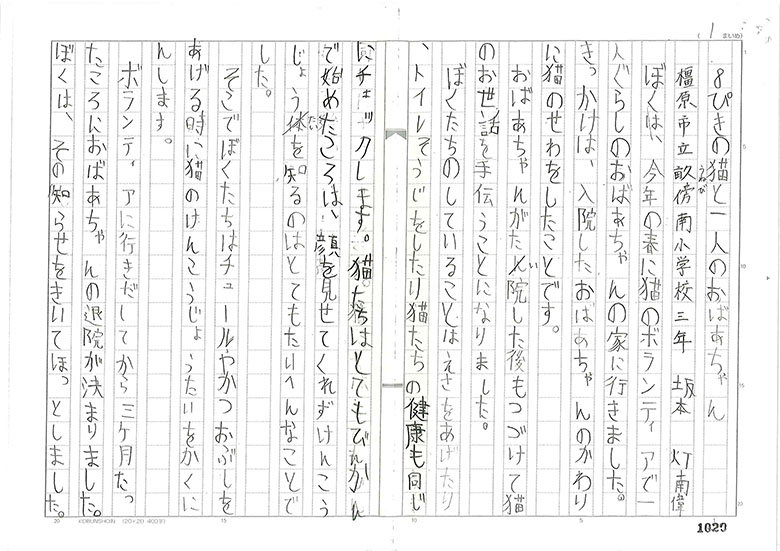 1
まいめ
8ぴきの猫と一人のおばあちゃん
橿原市立畝傍南小学校三年 坂本 灯南偉
うねび
ぼくは、今年の春に猫のボランティアで一
人ぐらしのおばあちゃんの家に行きました。
きっかけは、入院したおばあちゃんのかわり
に猫のせわをしたことです。
おばあちゃんがたい院した後もつづけて猫
のお世話を手伝うことになりました。
ぼくたちのしていることはえさをあげたり
、トイレそうじをしたり猫たちの健康も同じ
にチェックします。猫たちはとてもびんかん
で始めたころは、顔を見せてくれずけんこう
じょう体を知るのはとてもたいへんなことで
たい
した。
そこでぼくたちはチュールやかつおぶしを
あげる時に猫のけんこうじょうたいをかくに
んします。
ボランティアに行きだしてから三ケ月たっ
たころにおばあちゃんの退院が決まりました。
ぼくは、その知らせをきいてほっとしました。
1020
20
15
10
5
KOBUNSHOIN (20×20 400字)